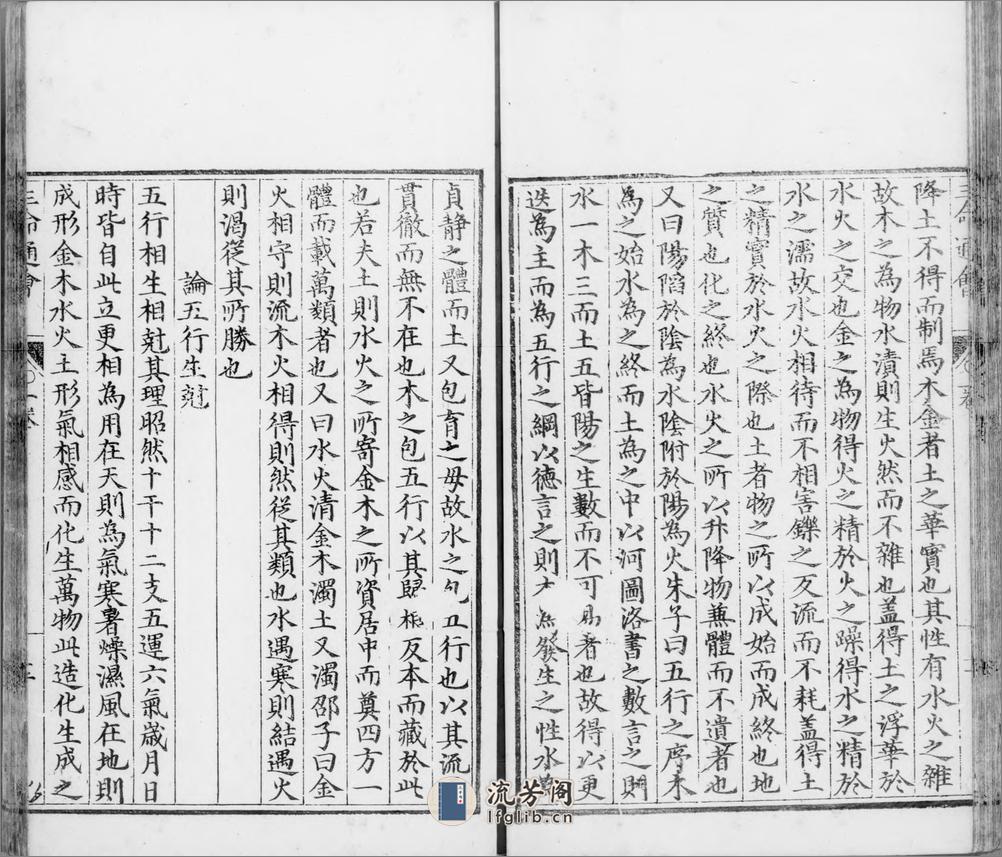 降土不得而制焉木金者土之華實也其性有水火之雜
故木之為物水漬則生火然而不雜也盖得土之浮華於
水火之交也金之為物得火之精於火之躁得水之精於
水之濡故水火相待而不相害鑠之反流而不耗盖得土
之精實於水火之際也土者物之所以成始而成終也地
之質也化之終也水火之所以升降物兼體而不遺者也
又曰陽陷於陰為水陰附於陽為火朱子曰五行之序木
為之始水為之終而土為之中以河圖洛書之數言之則
水一木三而土五皆陽之生數而不可易者也故得以更
迭為主而為五行之綱以德言之則木為發生之性水為
貞静之體而土又包育之母故水之包五行也以其流
貫徹而無不在也木之包五行以其歸根反本而藏於此
也若夫土則水火之所寄金木之所資居中而奠四方一
體而載萬類者也又曰水火清金木濁土又濁邵子曰金
火相守則流木火相得則然從其類也水遇寒則結遇火
則渴從其所勝也
論五行生尅
五行相生相尅其理昭然十干十二支五運六氣歲月日
時皆自此立更相為用在天則為氣寒暑燥濕風在地則
成形金木水火土形氣相感而化生萬物此造化生成之
三命通會
一卷
流芳阁
lfglib.cn